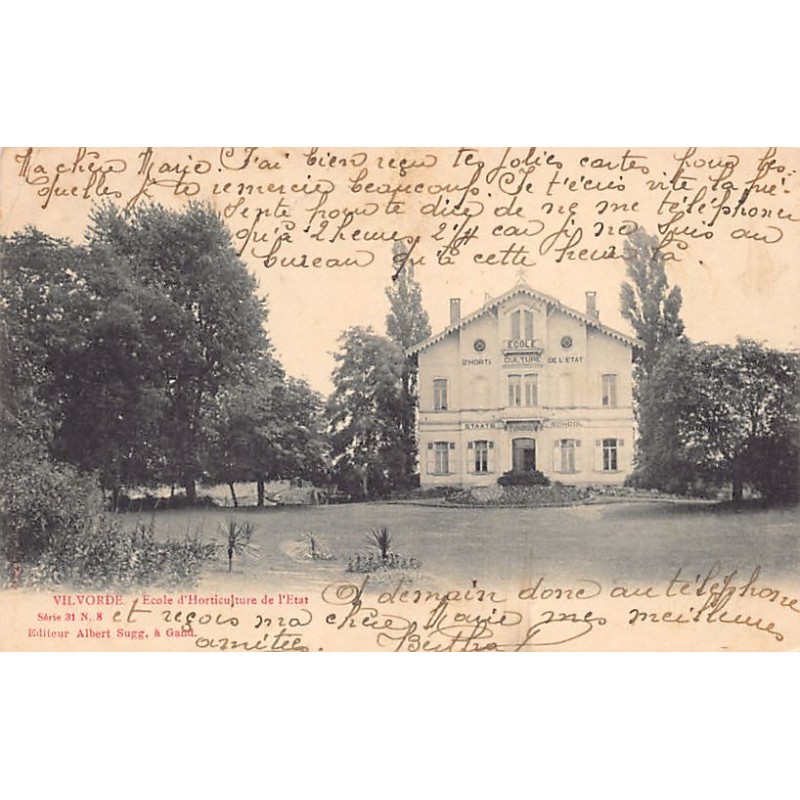 Ma chère Marie. J'ai bien reçu tes jolies cartes pour les-
quelles je te remercie beaucoup. Je t'écris vite la pré-
sente pour te dire de ne me téléphoner
qu'à 2 heures 2½ car je ne suis au
bureau qu'à cette heure là.
ECOLE
D'HORTI CULTURE DE L'ETAT
STAATS TUINBOUW SCHOOL
A demain donc au téléphone
VILVORDE. Ecole d'Horticulture de l'Etat
Série 31 N. 8
et reçois ma chère Marie mes meilleures
Editeur Albert Sugg, à Gand.
amitiés. Bertha